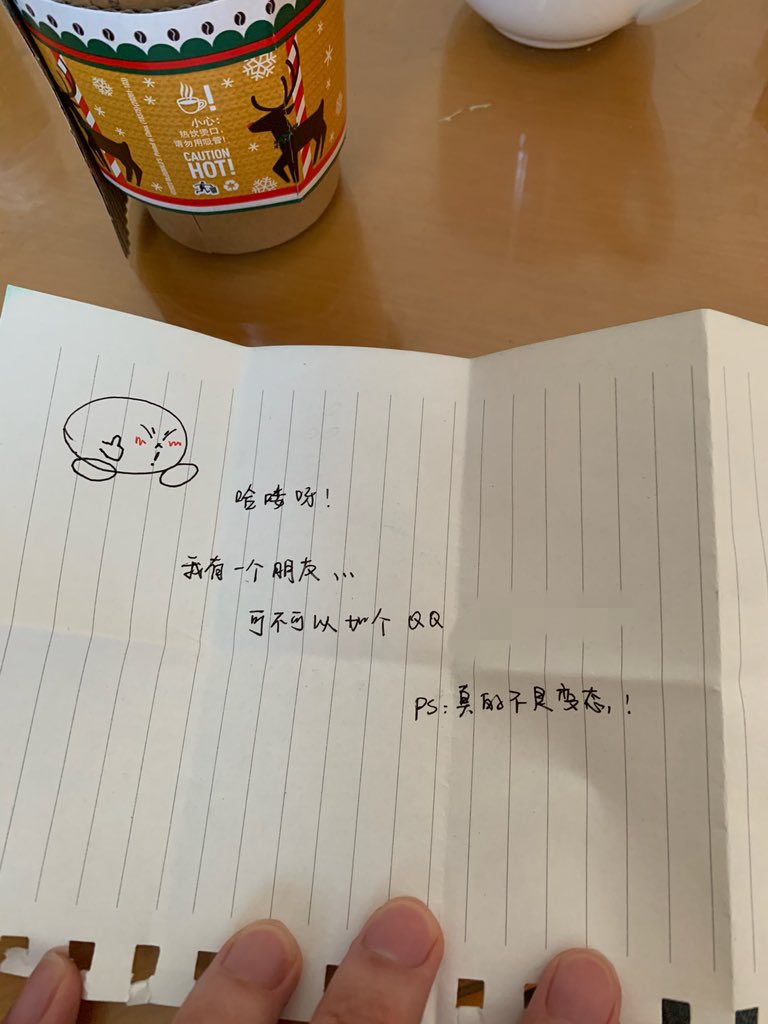 小心:
热饮烫口,
请勿用吸管!
CAUTION
HOT!
哈喽呀!
我有一个朋友...
可不可以加个QQ
PS:真的不是变态,!